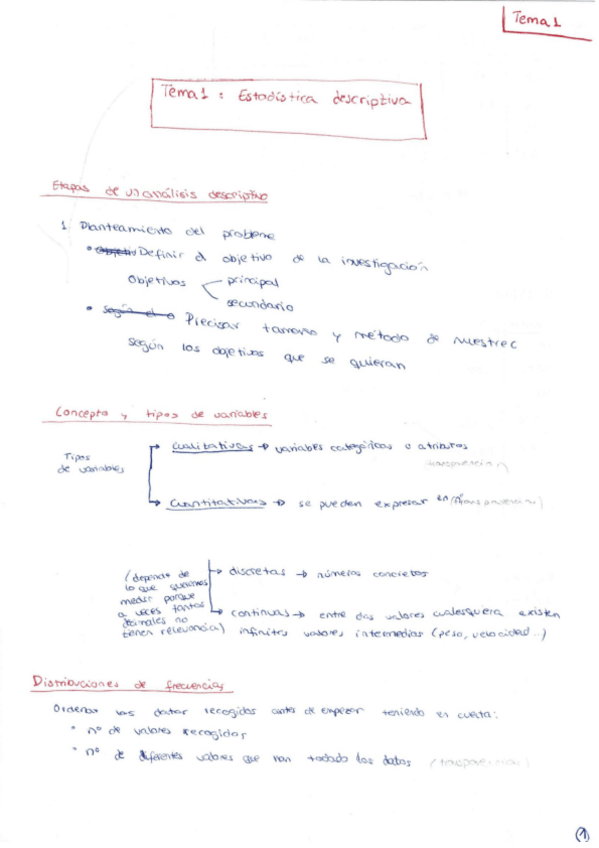 Tema 1
Tema 1 : Estadística descriptiva
Etapas de un análisis descriptivo
1. Planteamiento del problema
• Definir el objetivo de la investigación
Objetivos principal
secundario
• Precisar tamaño y método de muestreo
según los objetivos que se quieran
Concepto y tipos de variables
Tipos
de variables
Cualitativas → variables categóricas o atributos
(transparencia)
Cuantitativas → se pueden expresar en (transparencia)
(depende de
lo que queremos
medir porque
a veces tantos
decimales no
tienen relevancia)
discretas → números concretos
continuas → entre dos valores cualesquera existen
infinitos valores intermedios (peso, velocidad...)
Distribuciones de frecuencias
Ordenar los datos recogidos antes de empezar teniendo en cuenta:
• nº de valores recogidos
• nº de diferentes valores que han los datos (transparencia)
1